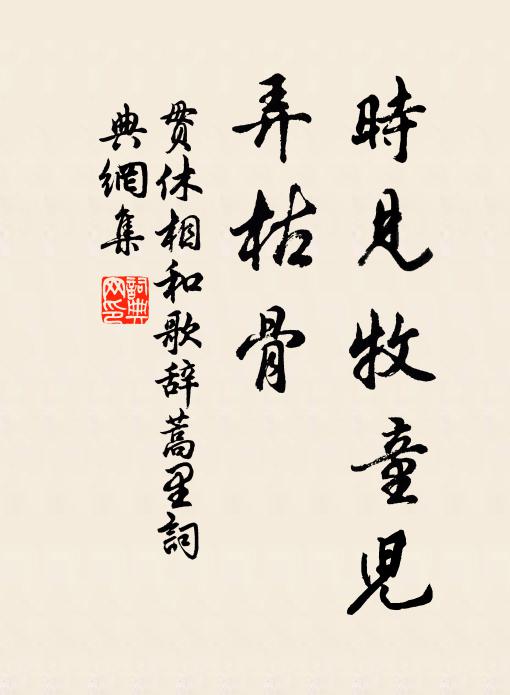 時見牧童児
弄枯骨
贯休相和歌辞蒿里詞
典網集
詞典网印